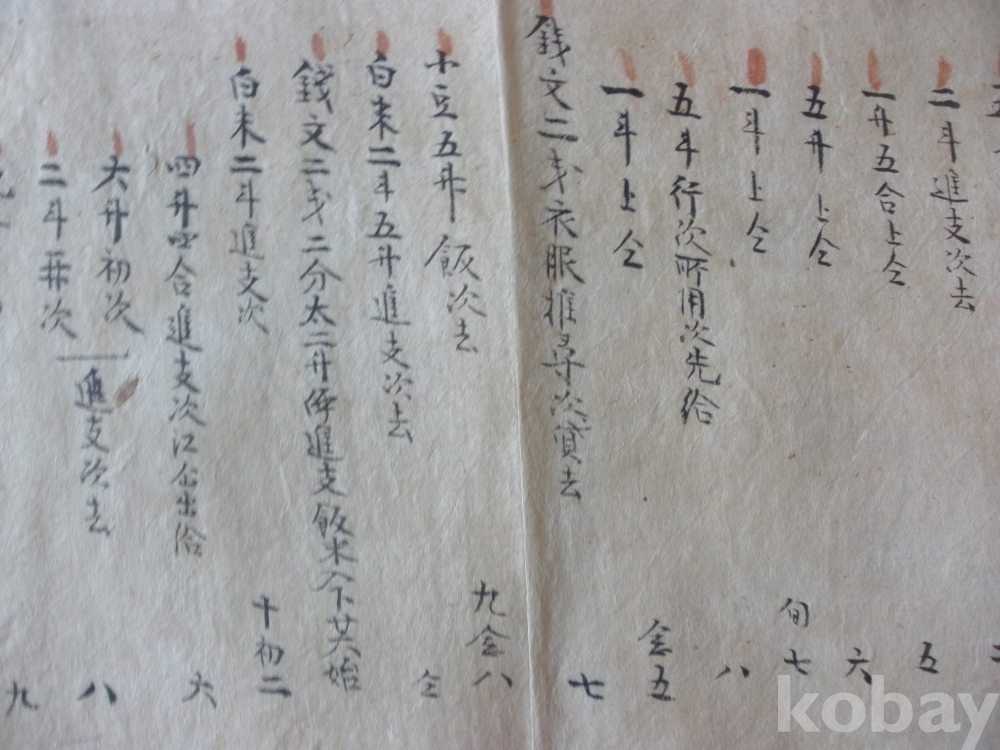 二斗進支次去 五
一升五合上仝 六
五升上仝 旬七
一斗上仝 八
五斗行次所用次先給 仝五
一斗上仝
錢文二戔衣服推尋次貸去 七
小豆五升飯次去 九仝八
白米二斗五升進支次去 仝
錢文二戔二分太二升價進支飯米今廿六始
白米二斗進支次 十初二
四升四合進支次江仝出給 六
六升初次 八
二斗再次 九
進支次去
kobay